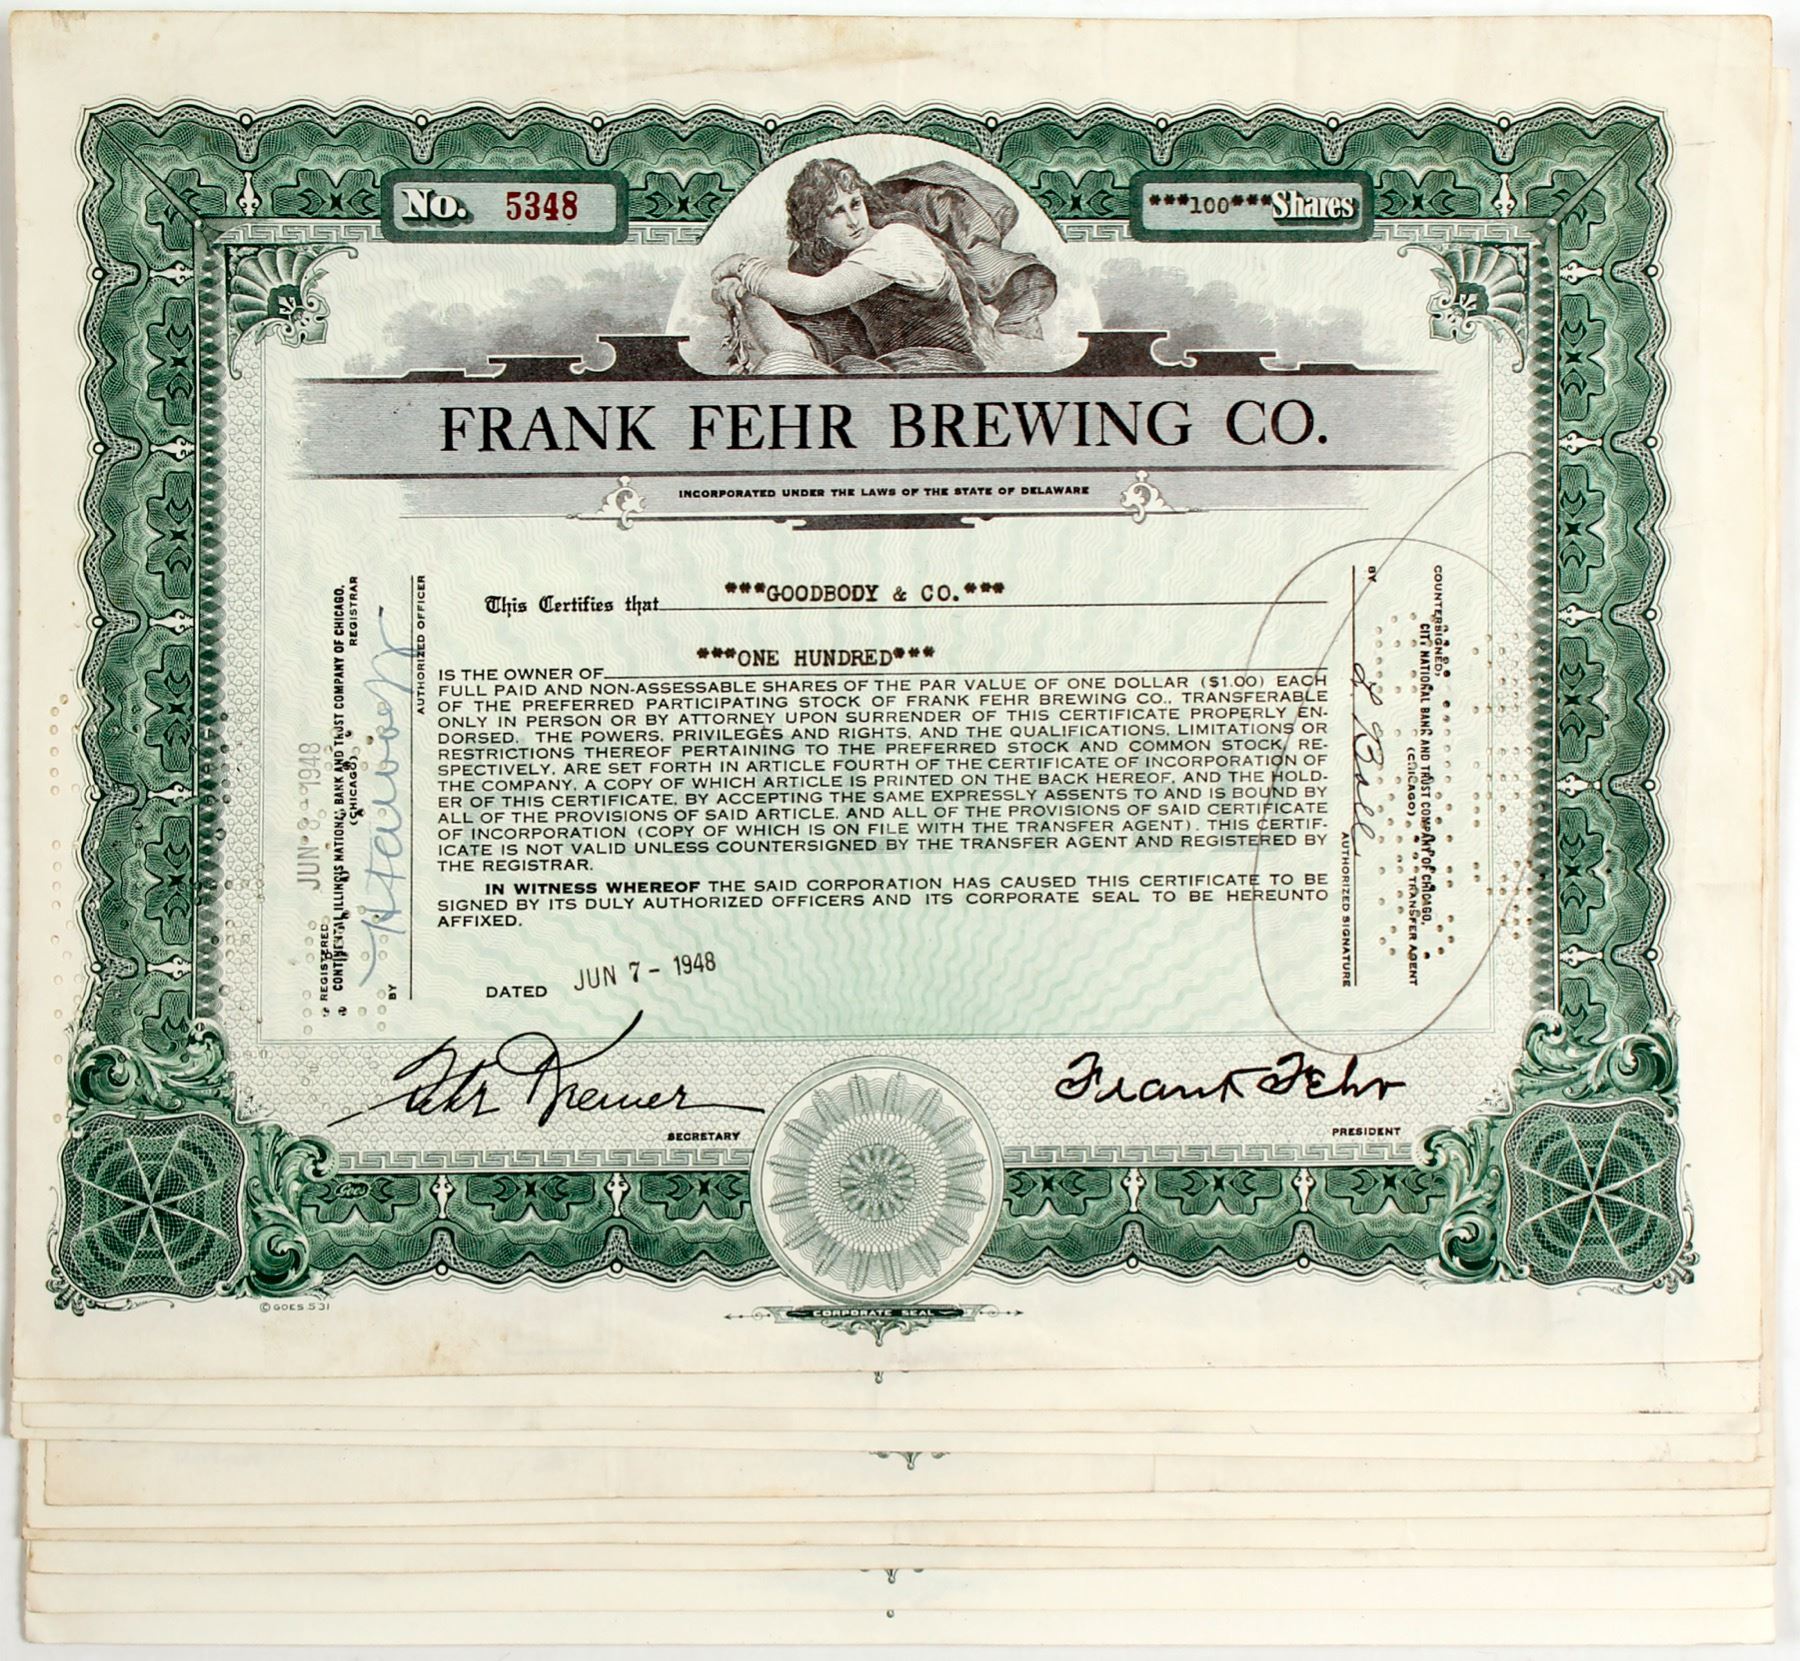 No. 5348
***100***Shares
FRANK FEHR BREWING CO.
INCORPORATED UNDER THE LAWS OF THE STATE OF DELAWARE
This Certifies that ***GOODBODY & CO.***
***ONE HUNDRED***
IS THE OWNER OF
FULL PAID AND NON-ASSESSABLE SHARES OF THE PAR VALUE OF ONE DOLLAR ($1.00) EACH
OF THE PREFERRED PARTICIPATING STOCK OF FRANK FEHR BREWING CO., TRANSFERABLE
ONLY IN PERSON OR BY ATTORNEY UPON SURRENDER OF THIS CERTIFICATE PROPERLY EN-
DORSED. THE POWERS, PRIVILEGES AND RIGHTS, AND THE QUALIFICATIONS, LIMITATIONS OR
RESTRICTIONS THEREOF PERTAINING TO THE PREFERRED STOCK AND COMMON STOCK, RE-
SPECTIVELY, ARE SET FORTH IN ARTICLE FOURTH OF THE CERTIFICATE OF INCORPORATION OF
THE COMPANY, A COPY OF WHICH ARTICLE IS PRINTED ON THE BACK HEREOF, AND THE HOLD-
ER OF THIS CERTIFICATE, BY ACCEPTING THE SAME EXPRESSLY ASSENTS TO AND IS BOUND BY
ALL OF THE PROVISIONS OF SAID ARTICLE, AND ALL OF THE PROVISIONS OF SAID CERTIFICATE
OF INCORPORATION (COPY OF WHICH IS ON FILE WITH THE TRANSFER AGENT). THIS CERTIF-
ICATE IS NOT VALID UNLESS COUNTERSIGNED BY THE TRANSFER AGENT AND REGISTERED BY
THE REGISTRAR.
IN WITNESS WHEREOF THE SAID CORPORATION HAS CAUSED THIS CERTIFICATE TO BE
SIGNED BY ITS DULY AUTHORIZED OFFICERS AND ITS CORPORATE SEAL TO BE HEREUNTO
AFFIXED.
DATED JUN 7 - 1948
JUN 8 - 1948
REGISTERED
CONTINENTAL ILLINOIS NATIONAL BANK AND TRUST COMPANY OF CHICAGO,
(CHICAGO) REGISTRAR
BY
AUTHORIZED OFFICER
COUNTERSIGNED:
CITY NATIONAL BANK AND TRUST COMPANY OF CHICAGO,
(CHICAGO) TRANSFER AGENT
BY
AUTHORIZED SIGNATURE
Fehr Kremer
SECRETARY
Frank Fehr
PRESIDENT
Goes
© GOES 531
CORPORATE SEAL